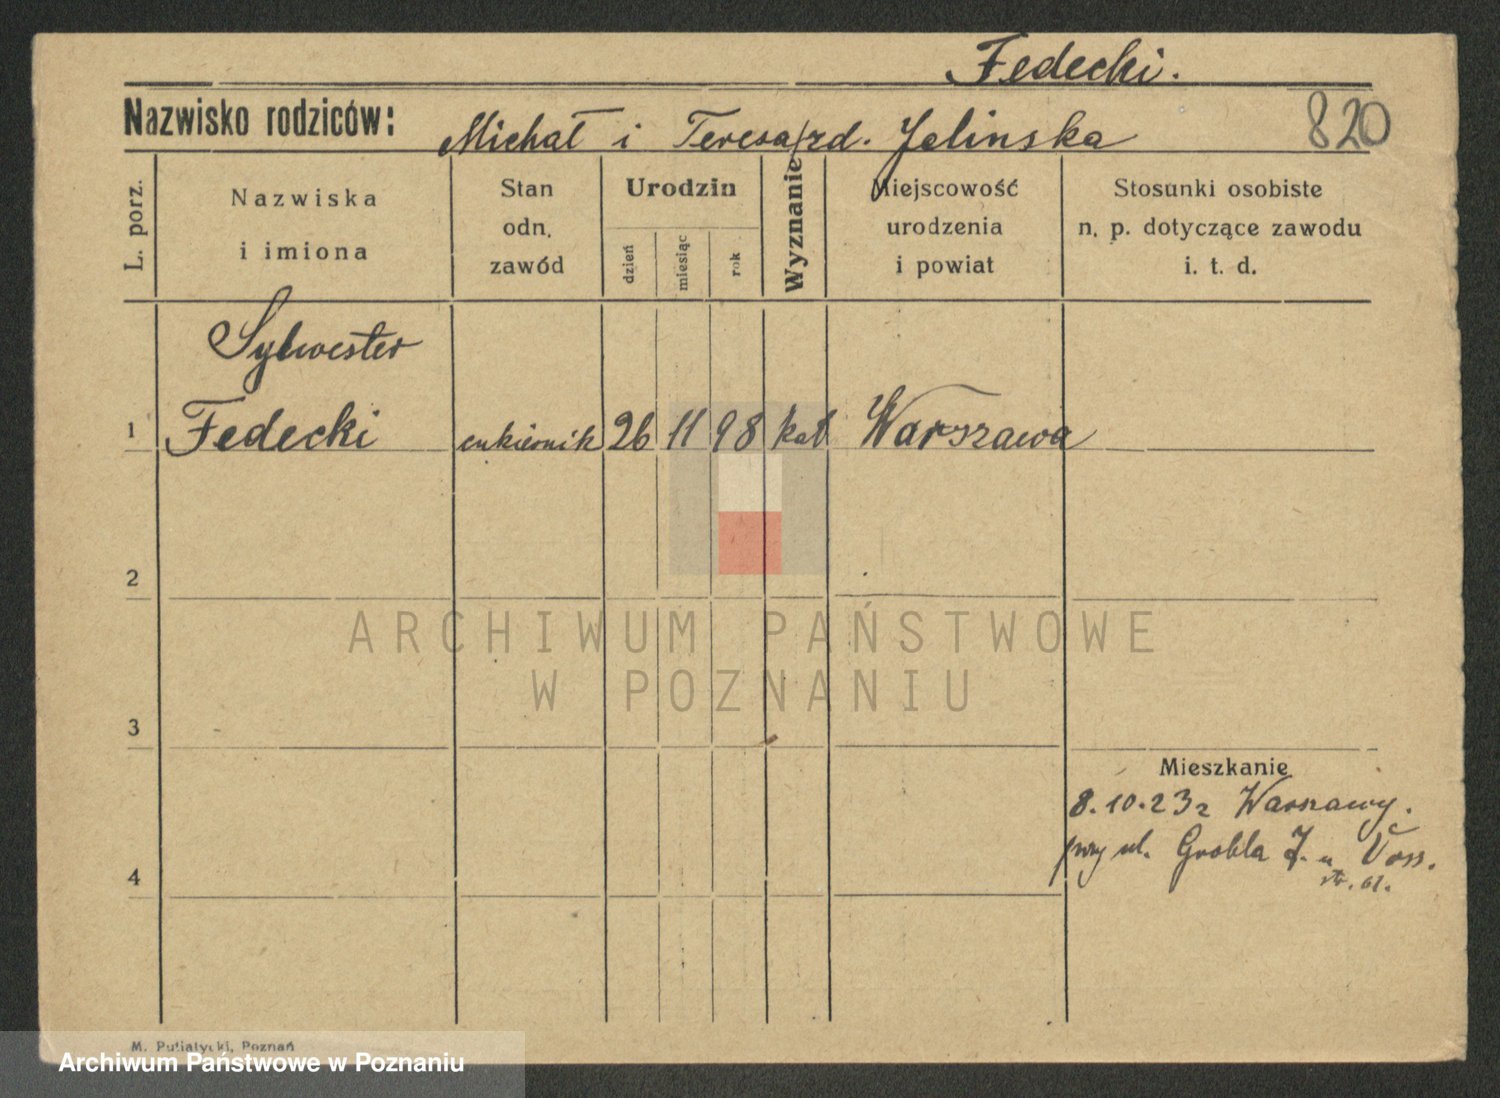 Fedecki.
820
Nazwisko rodziców: Michał i Teresa rd. Jelinska
L. porz.
Nazwiska
i imiona
Stan
odn.
zawód
Urodzin
dzień
miesiąc
rok
Wyznanie
Miejscowość
urodzenia
i powiat
Stosunki osobiste
n. p. dotyczące zawodu
i. t. d.
Sylwester
1 Fedecki cukiernik 26 11 98 kat Warszawa
2
ARCHIWUM PAŃSTWOWE
W POZNANIU
3
Mieszkanie
8.10.23 z Warszawy.
przy ul. Grobla 7. u Voss.
4
str. 61.
M. Putiatycki, Poznań
Archiwum Państwowe w Poznaniu